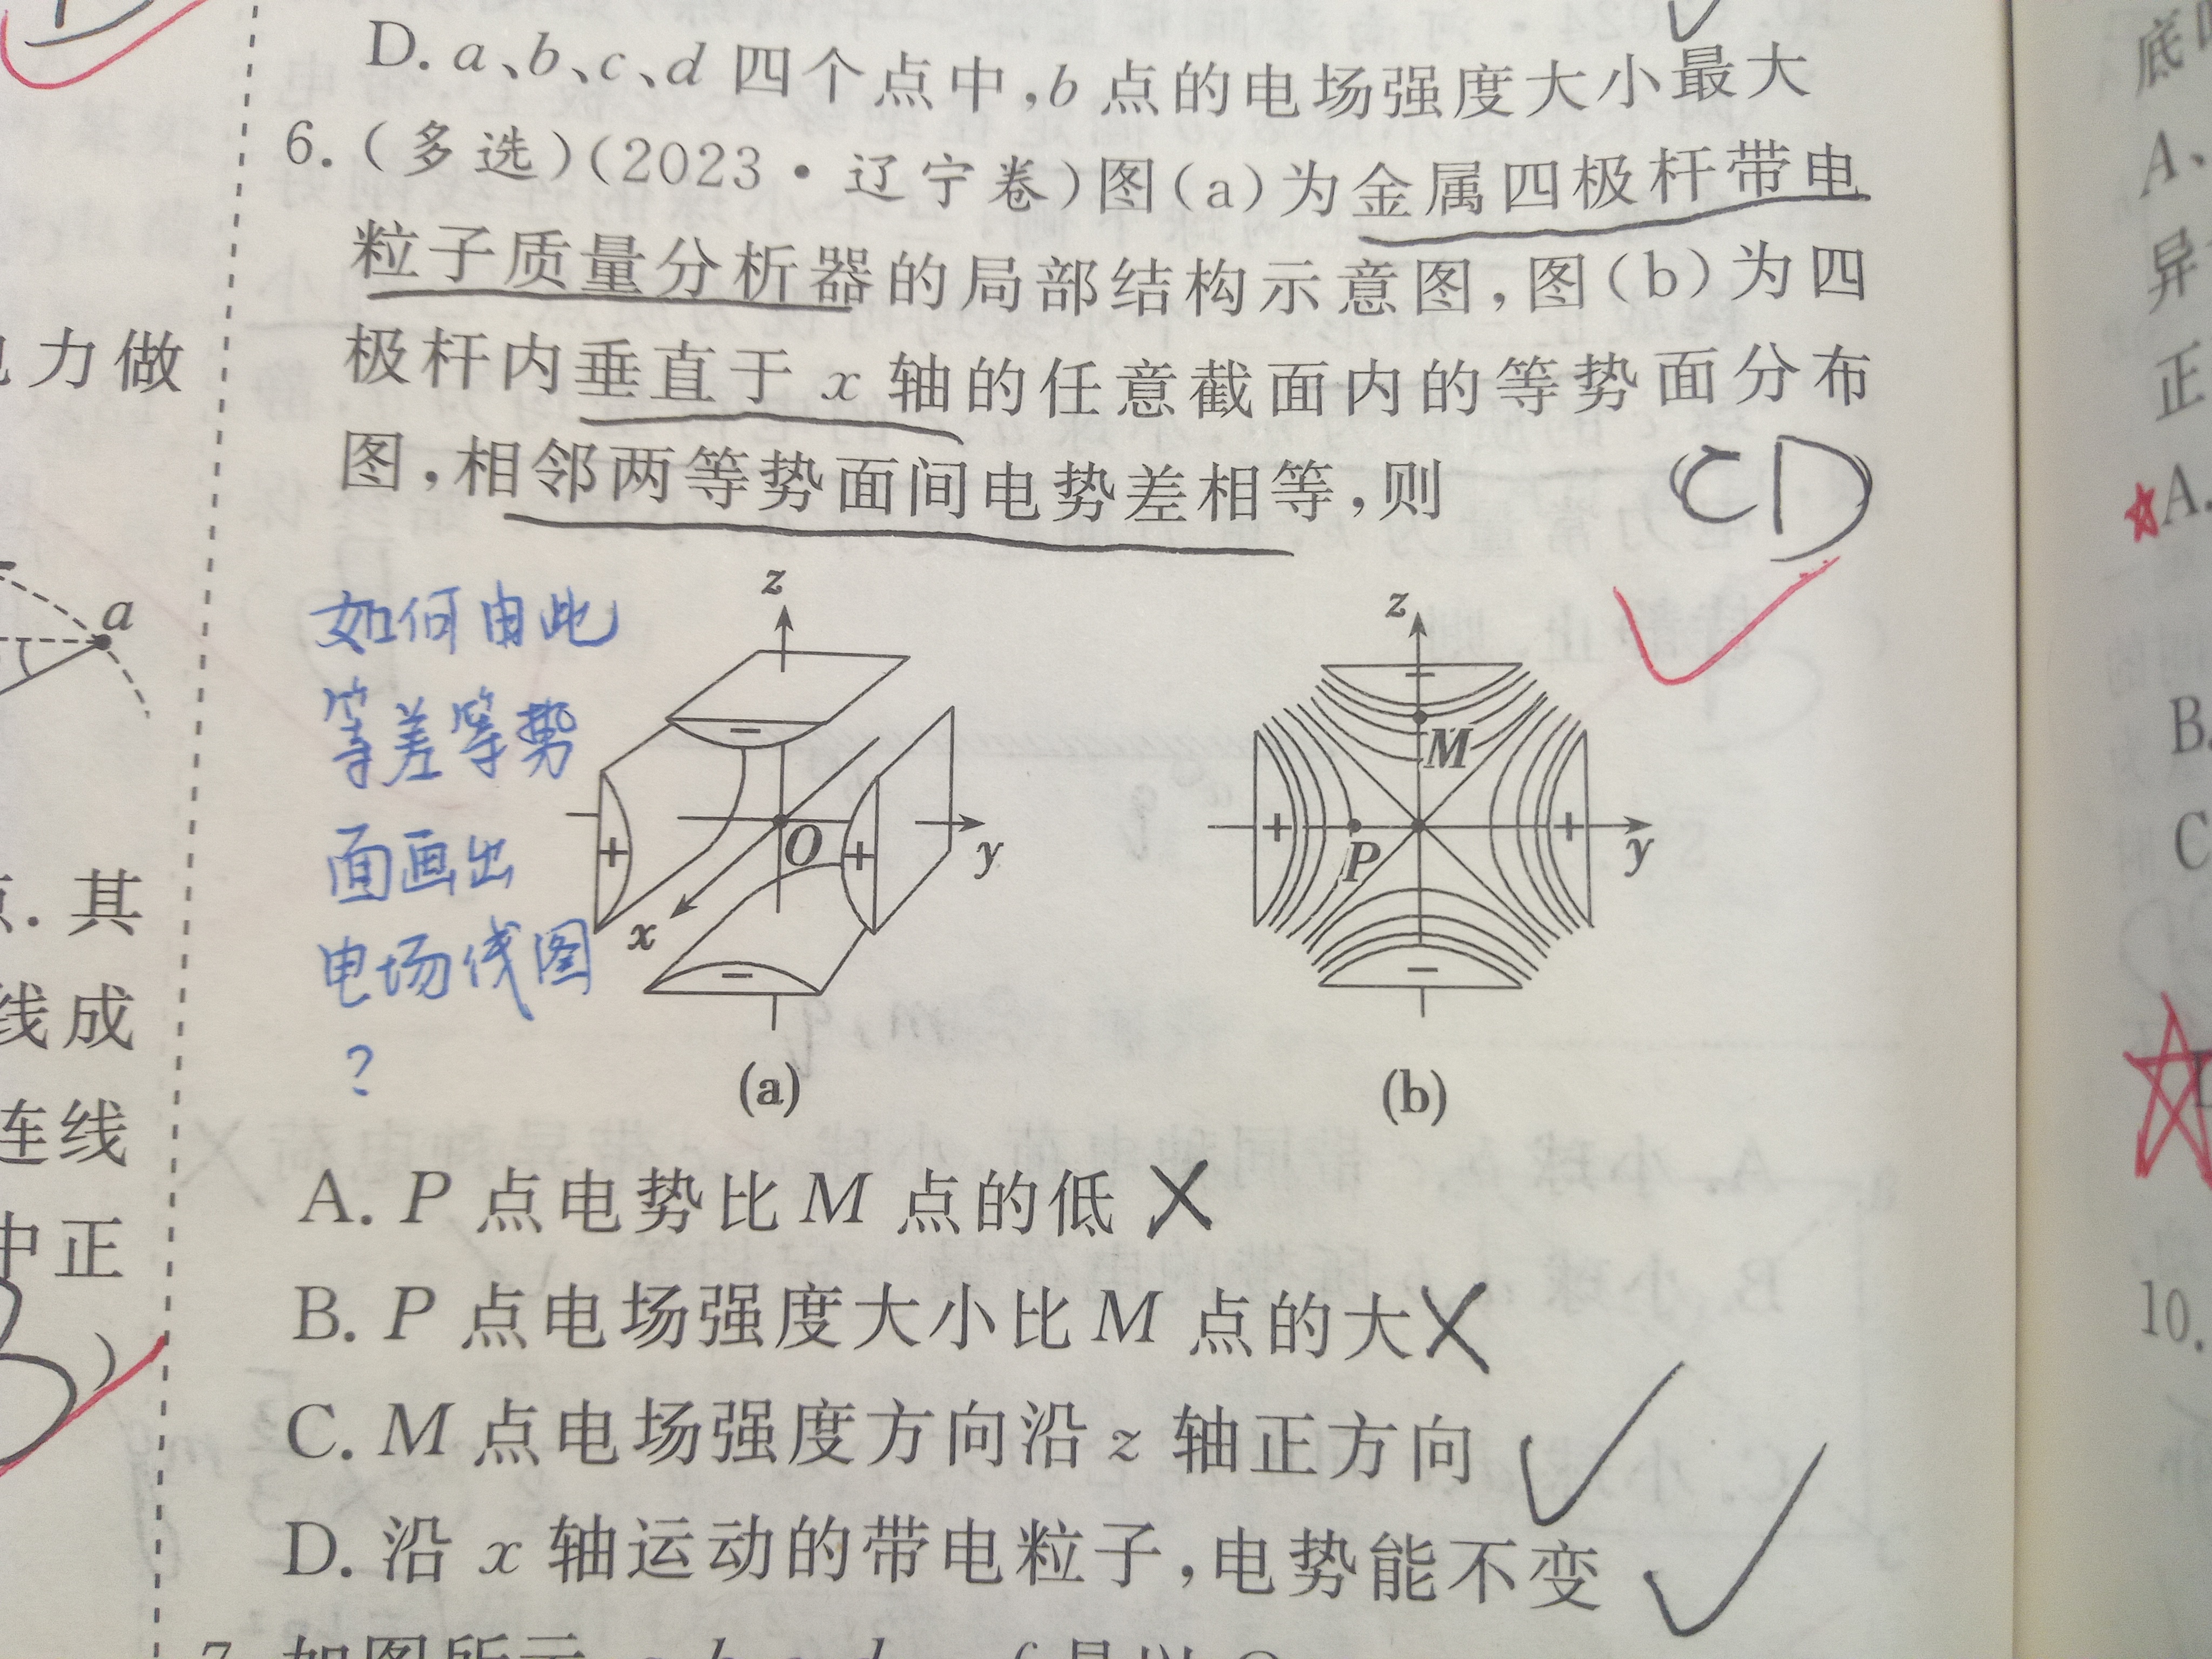 D. a、b、c、d 四个点中,b 点的电场强度大小最大
6. (多选)(2023·辽宁卷)图(a)为金属四极杆带电
粒子质量分析器的局部结构示意图,图(b)为四
极杆内垂直于 x 轴的任意截面内的等势面分布
图,相邻两等势面间电势差相等,则
CD
如何由此
等差等势
面画出
电场线图
?
z
+
−
O
+
y
x
−
(a)
z
−
M
+
P
+
y
−
(b)
A. P 点电势比 M 点的低 ×
B. P 点电场强度大小比 M 点的大 ×
C. M 点电场强度方向沿 z 轴正方向 ✓
D. 沿 x 轴运动的带电粒子,电势能不变 ✓
力做
a
其
线成
连线
中正
底
A、
异
正
A.
B.
C
10.